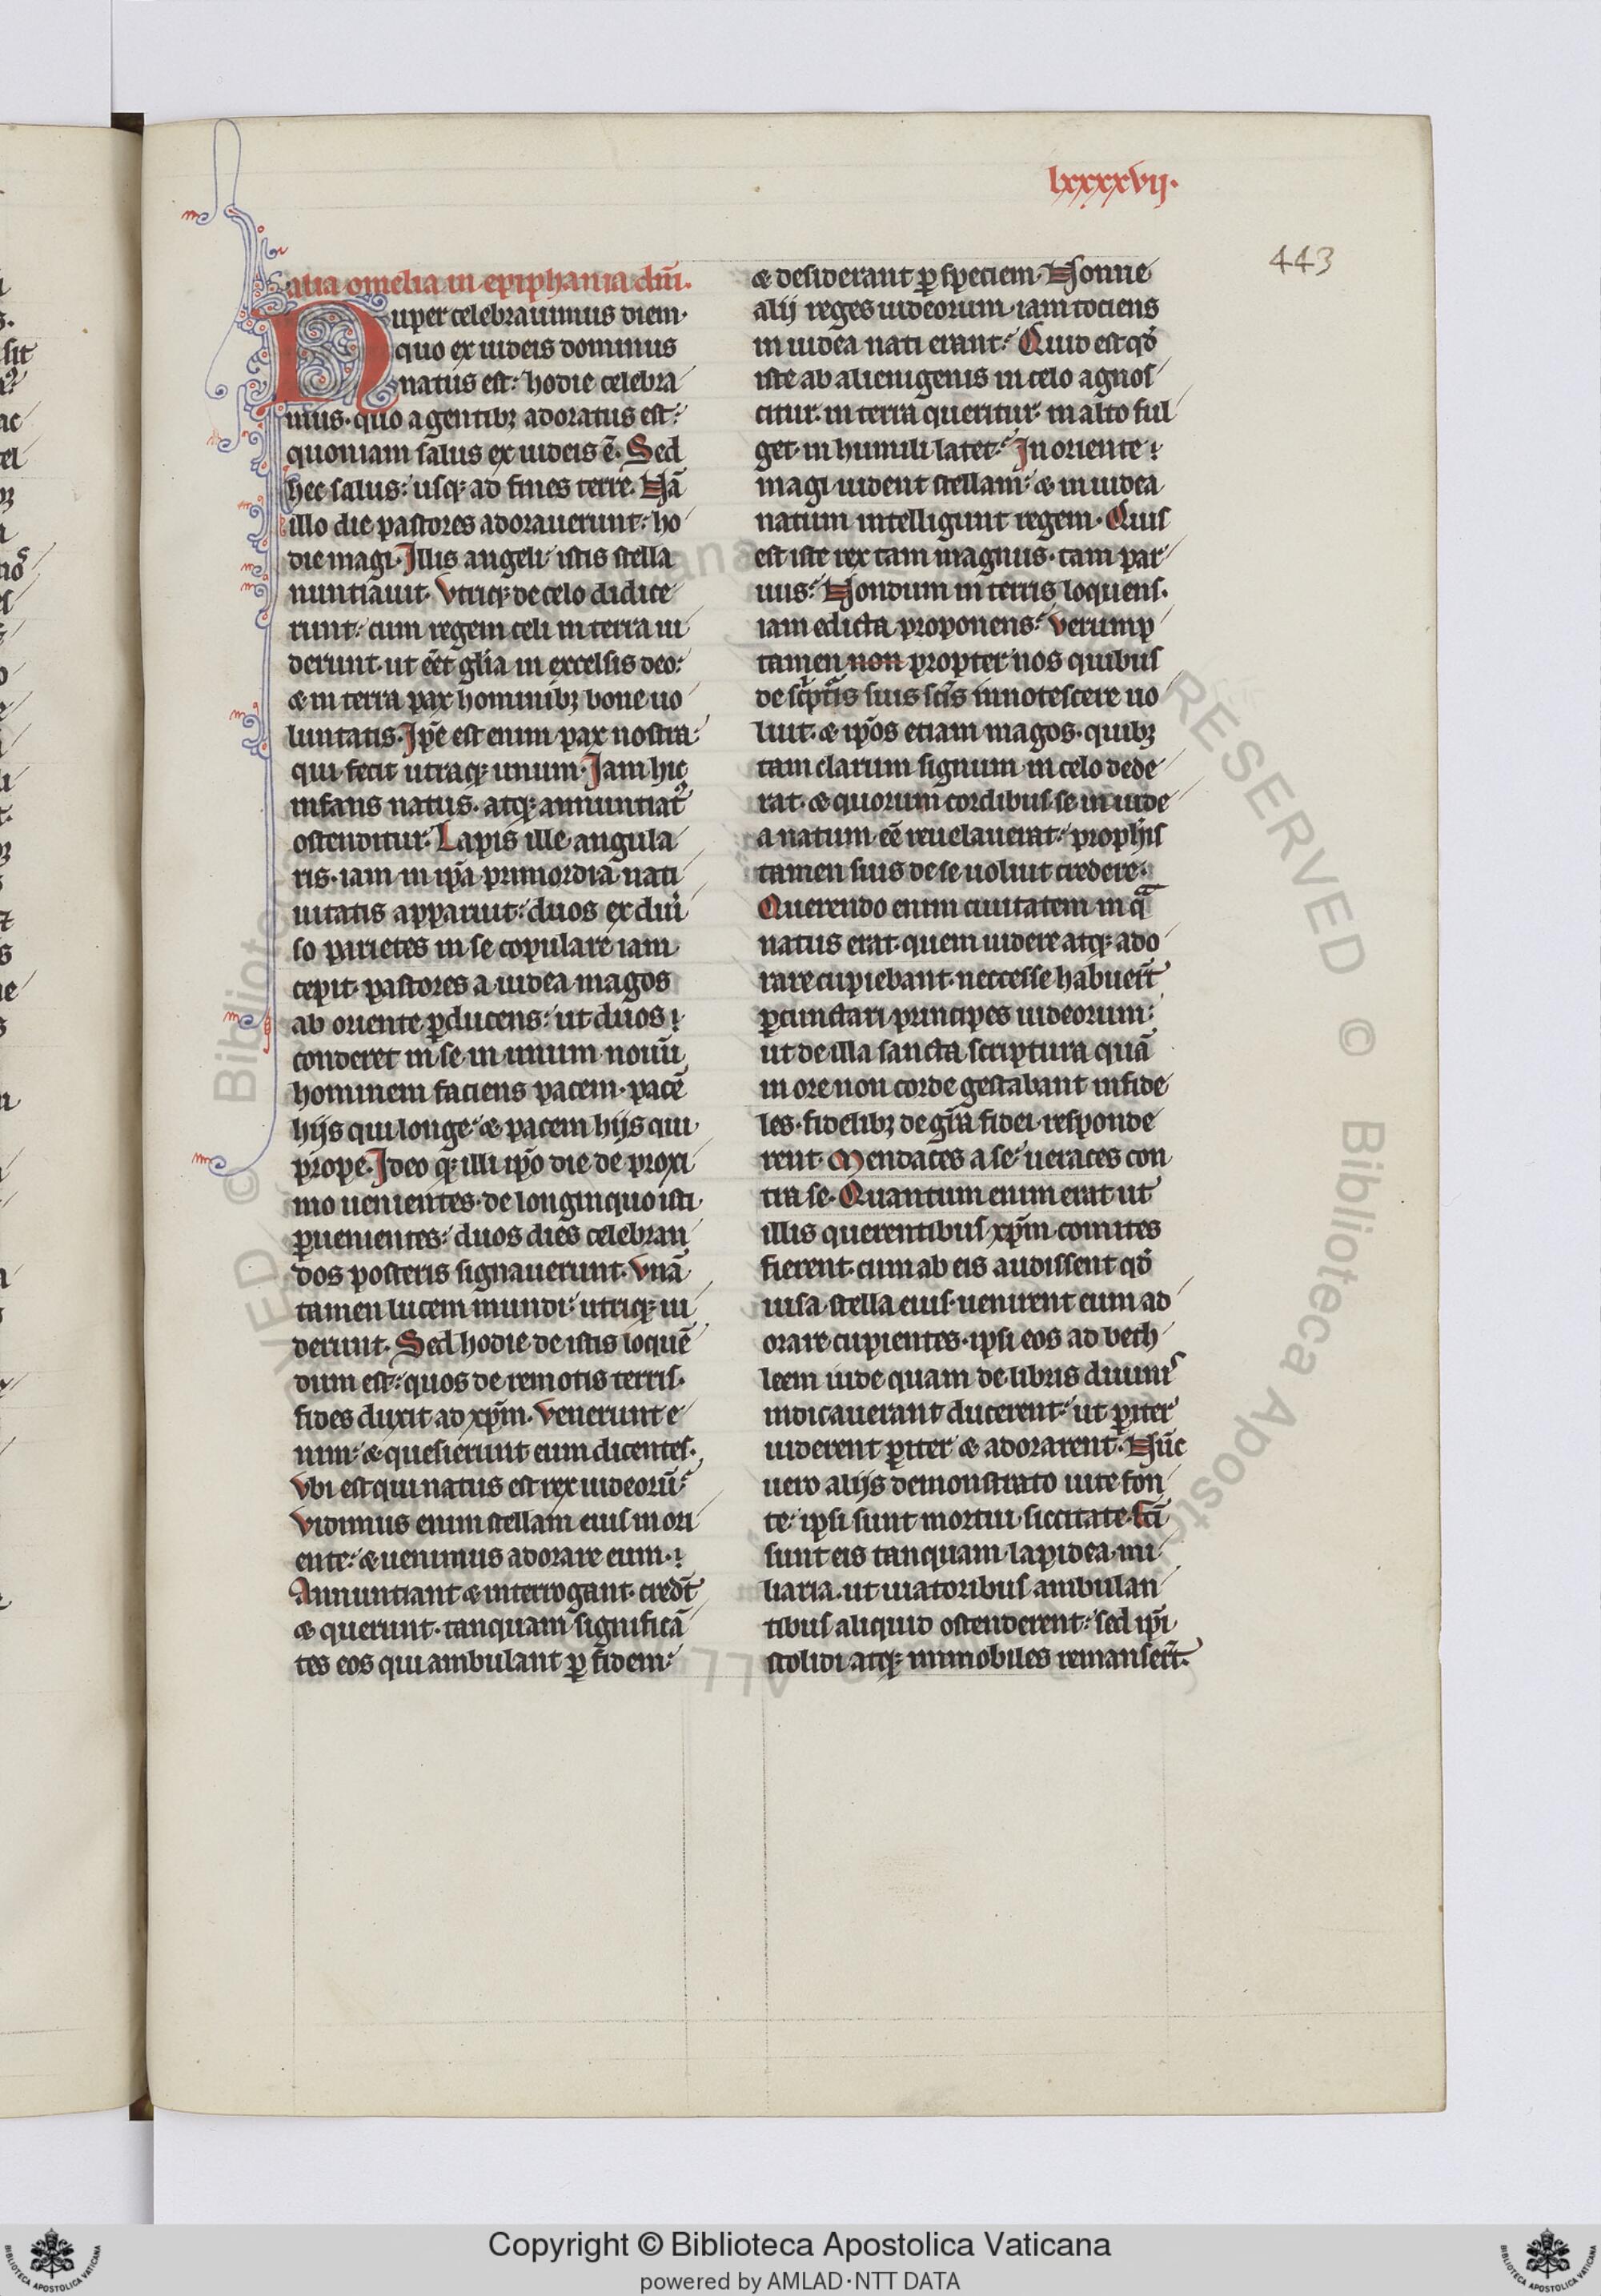 lxxxxvij.
443
alia omelia in epiphania dnī.
Nuper celebrauimus diem·
quo ex iudeis dominus
natus est: hodie celebra
mus· quo a gentibꝫ adoratus est:
quoniam salus ex iudeis ē. Sed
hec salus: usqꝫ ad fines terre. Nā
illo die pastores adorauerunt: ho
die magi. Illis angeli: istis stella
nuntiauit. Vtriqꝫ de celo didice
runt: cum regem celi in terra ui
derunt· ut eēt glīa in excelsis deo:
& in terra pax hominibꝫ bone uo
luntatis. Ip̄e est enim pax nostra:
qui fecit utraqꝫ unum. Iam hic
infans natus· atqꝫ annuntiatꝰ
ostenditur. Lapis ille angula
ris· iam in ip̄a primordia nati
uitatis apparuit: duos ex diu̾
so parietes in se copulare iam
cepit· pastores a iudea magos
ab oriente ꝑducens: ut duos
conderet in se in unum nouū
hominem faciens pacem· pacē
hijs qui longe: & pacem hijs qui
prope. Ideo qꝫ illi ip̄o die de proxi
mo uenientes· de longinquo isti
ꝑuenientes: duos dies celebran
dos posteris signauerunt. Vnā
tamen lucem mundi: utriqꝫ ui
derunt. Sed hodie de istis loquē
dum est: quos de remotis terris·
fides duxit ad xp̄m. Venerunt e
nim: & quesierunt eum dicentes·
Vbi est qui natus est rex iudeorū:
Vidimus enim stellam eius in ori
ente: & uenimus adorare eum·
Annuntiant & interrogant· credt̄
& querunt· tanquam significā
tes eos qui ambulant ꝑ fidem:
& desiderant ꝑ speciem. Nonne
alij reges iudeorum· iam tociens
in iudea nati erant: Quid est qd̾
iste ab alienigenis in celo agnos
citur· in terra queritur· in alto ful
get· in humili latet: In oriente
magi uident stellam: & in iudea
natum intelligunt regem. Quis
est iste rex tam magnus· tam par
uus: Nondum in terris loquens·
iam edicta proponens: Verump
tamen non propter nos quibus
de sc̾ptīs suis sc̄is innotescere uo
luit: & ip̄os etiam magos· quibꝫ
tam clarum signum in celo dede
rat· & quorum cordibus se in iude
a natum eē reuelauerat: proph̾is
tamen suis de se uoluit credere:
Querendo enim ciuitatem in qᵃ
natus erat quem uidere atqꝫ ado
rare cupiebant· neccesse habuert̄
ꝑcunctari principes iudeorum:
ut de illa sancta scriptura quā
in ore non corde gestabant infide
les· fidelibꝫ de gīa fidei responde
rent· Mendaces a se: ueraces con
tra se. Quantum enim erat ut
illis querentibus xp̄m comites
fierent· cum ab eis audissent qd̾
uisa stella eius· uenirent eum ad
orare cupientes· ipsi eos ad beth
leem iude quam de libris diuinis
indicauerant ducerent: ut ꝑiter
uiderent ꝑiter & adorarent. Nūc
uero alijs demonstrato uite fon
te: ipsi sunt mortui siccitate. Fc̄i
sunt eis tanquam lapidea mi
liaria· ut uiatoribus ambulan
tibus aliquid ostenderent: sed ip̄i
stolidi atqꝫ immobiles remansert̄.
Copyright © Biblioteca Apostolica Vaticana
powered by AMLAD·NTT DATA